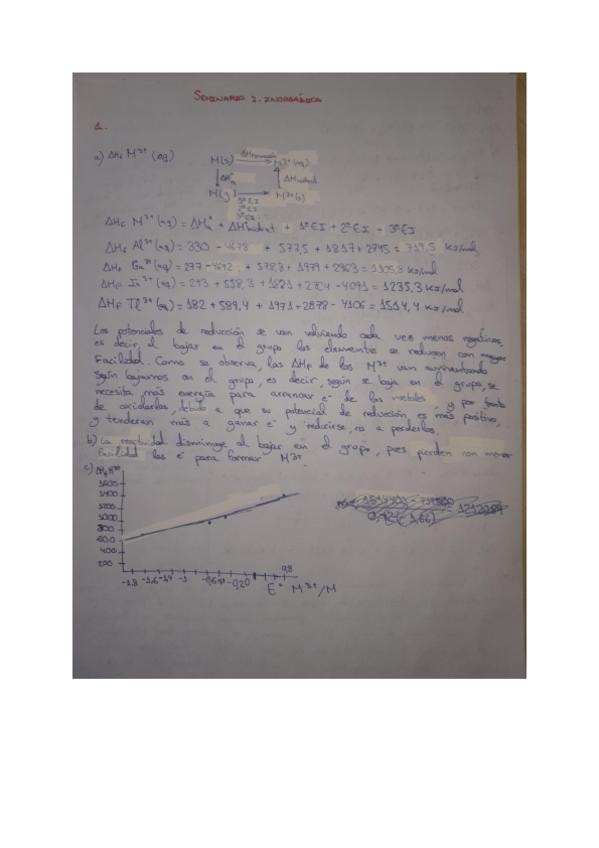 SEMINARIO 2. INORGÁNICA
1.
a) ΔHf M³⁺ (aq) M(s) → M³⁺(aq)
ΔHºa ΔHhidrat
M(g) → M³⁺(g)
1ª EI
2ª EI
3ª EI
ΔHf M³⁺(aq) = ΔHºa + ΔHhidrat + 1ª EI + 2ª EI + 3ª EI
ΔHf Al³⁺(aq) = 330 - 4678 + 577,5 + 1817 + 2745 = 719,5 KJ/mol
ΔHf Ga³⁺(aq) = 277 - 4692 + 578,8 + 1979 + 2963 = 1105,8 KJ/mol
ΔHf In³⁺(aq) = 243 + 558,3 + 1821 + 2704 - 4091 = 1235,3 KJ/mol
ΔHf Tl³⁺(aq) = 182 + 589,4 + 1971 + 2878 - 4106 = 1514,4 KJ/mol
Los potenciales de reducción se van volviendo cada vez menos negativos,
es decir, al bajar en el grupo los elementos se reducen con mayor
facilidad. Como se observa, las ΔHf de los M³⁺ van aumentando
según bajamos en el grupo, es decir, según se baja en el grupo, se
necesita más energía para arrancar e⁻ de los metales, y por tanto
de oxidarlos, debido a que su potencial de reducción es más positivo,
y tenderan más a ganar e⁻ y reducirse, no a perderlos.
b) La reactividad disminuye al bajar en el grupo, pues pierden con menor
facilidad los e⁻ para formar M³⁺.
c) ΔHf M³⁺
1600
1400
1200
1000
800
600
400
200
-1,8 -1,6 -1,4 -1 -0,20 0,8
E° M³⁺/M